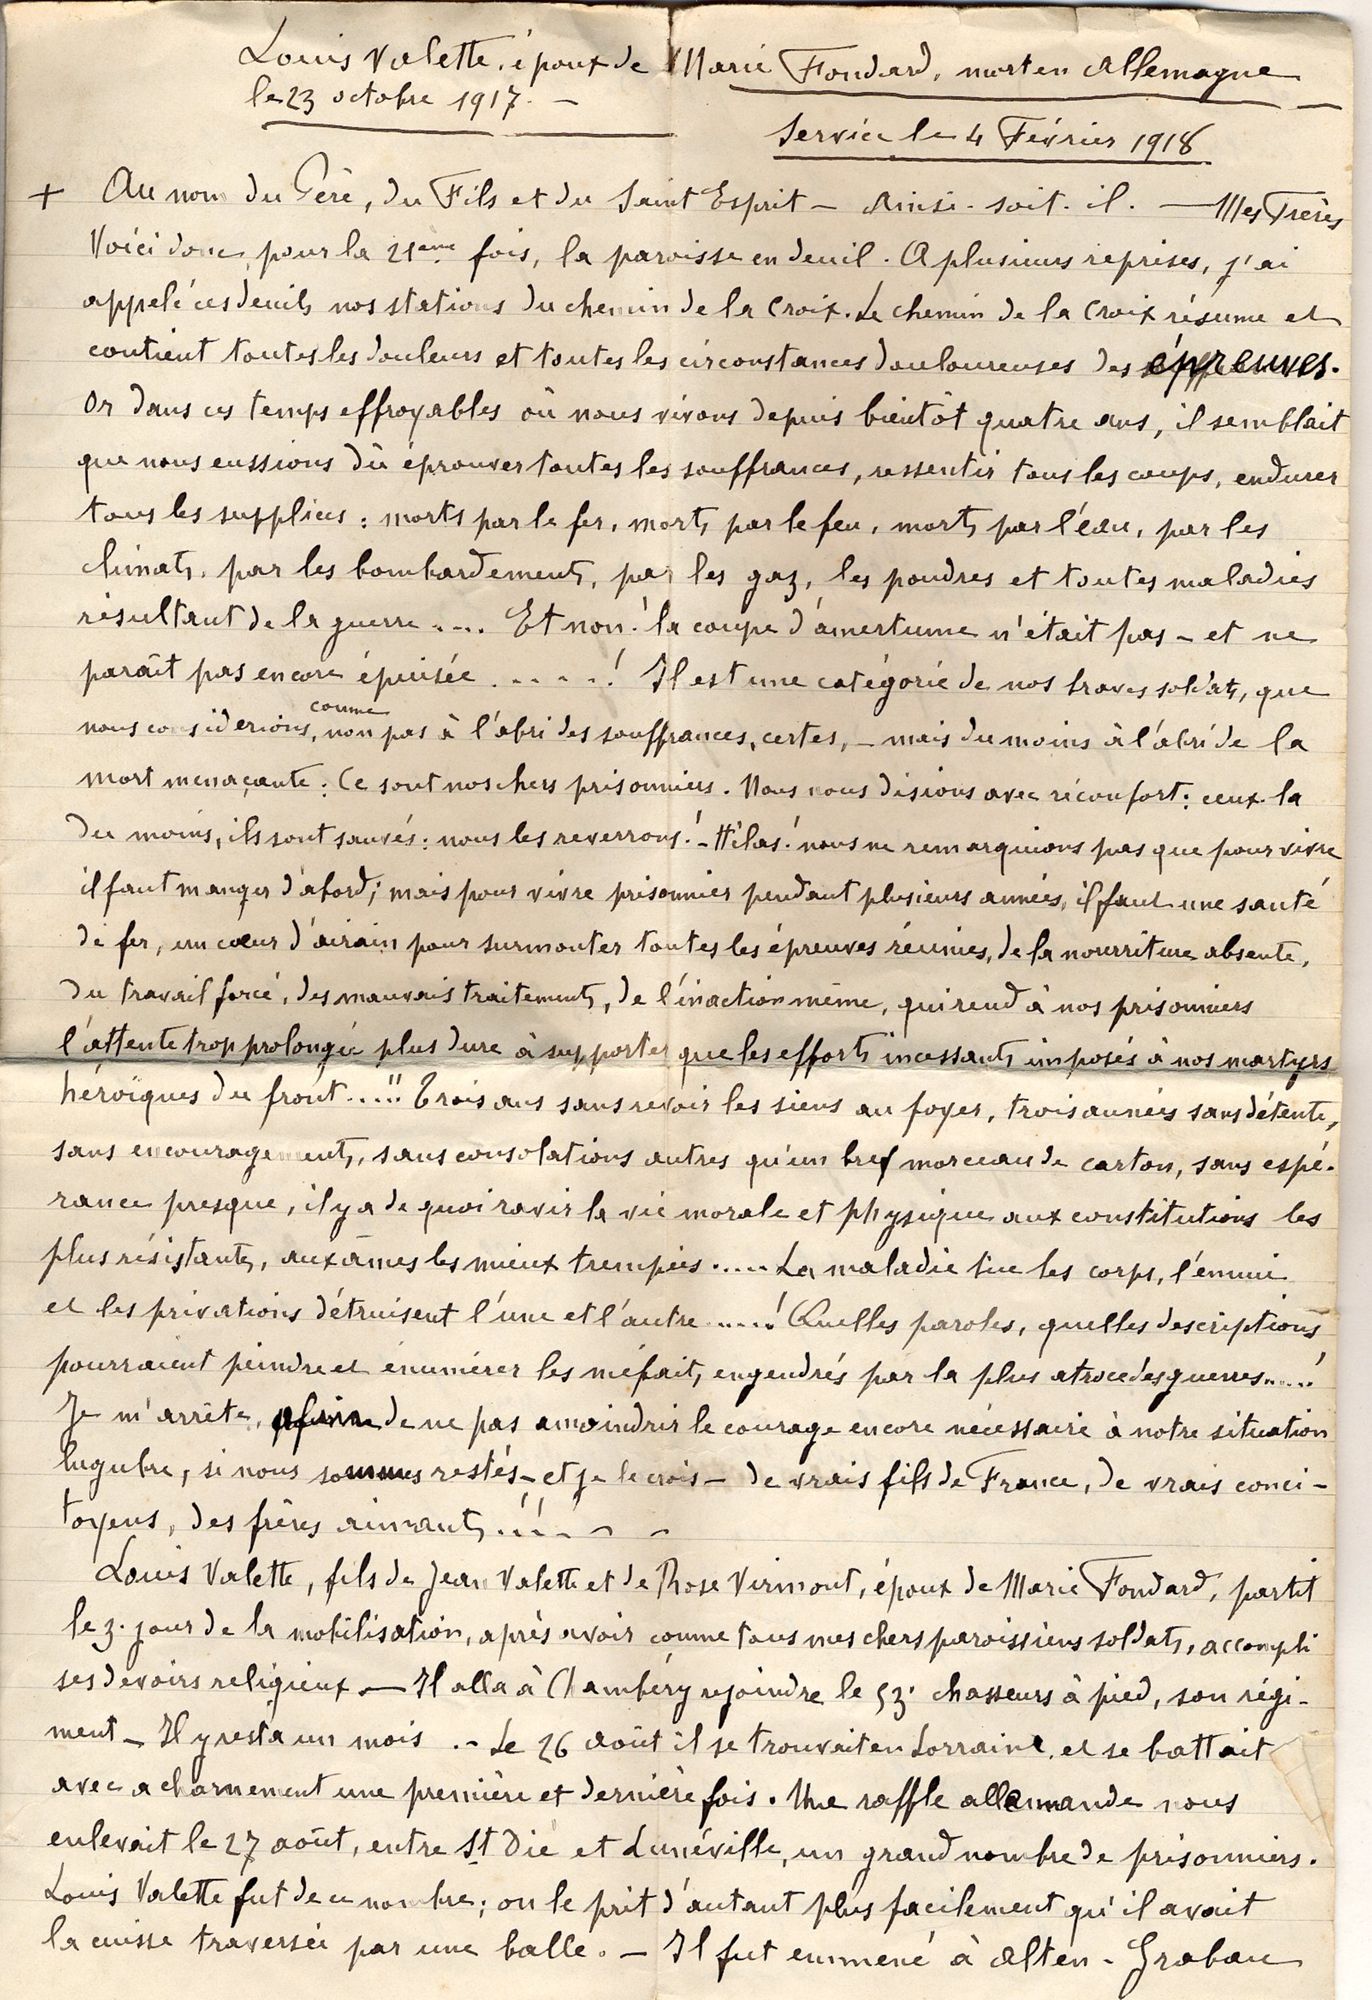 Louis Valette, époux de Marie Fondard, mort en Allemagne
le 23 octobre 1917. –
Service le 4 Février 1918
+ Au nom du Père, du Fils et du Saint Esprit – Ainsi-soit-il. — Mes Frères
Voici donc, pour la 21ème fois, la paroisse en deuil. A plusieurs reprises, j'ai
appelé ces deuils nos stations du chemin de la Croix. Le chemin de la Croix résume et
contient toutes les douleurs et toutes les circonstances douloureuses des épreuves.
Or dans ces temps effroyables où nous vivons depuis bientôt quatre ans, il semblait
que nous eussions dû éprouver toutes les souffrances, ressentir tous les coups, endurer
tous les supplices : morts par le fer, morts par le feu, morts par l'eau, par les
climats, par les bombardements, par les gaz, les poudres et toutes maladies
résultant de la guerre .... Et non ! la coupe d'amertume n'était pas – et ne
paraît pas encore épuisée ..... ! Il est une catégorie de nos braves soldats, que
nous considerions, comme non pas à l'abri des souffrances, certes, – mais du moins à l'abri de la
mort menaçante : Ce sont nos chers prisonniers. Nous nous disions avec réconfort : ceux-là
du moins, ils sont sauvés : nous les reverrons ! – Hélas ! nous ne remarquions pas que pour vivre
il faut manger d'abord ; mais pour vivre prisonnier pendant plusieurs années, il faut une santé
de fer, un cœur d'airain pour surmonter toutes les épreuves réunies, de la nourriture absente,
du travail forcé, des mauvais traitements, de l'inaction même, qui rend à nos prisonniers
l'attente trop prolongée plus dure à supporter que les efforts incessants imposés à nos martyrs
héroïques du front ....!! Trois ans sans revoir les siens au foyer, trois années sans détente,
sans encouragements, sans consolations autres qu'un bref morceau de carton, sans espé-
rance presque, il y a de quoi ravir la vie morale et physique aux constitutions les
plus résistantes, aux âmes les mieux trempées ..... La maladie tue les corps, l'ennui
et les privations détruisent l'une et l'autre .....! Quelles paroles, quelles descriptions
pourraient peindre et énumérer les méfaits engendrés par la plus atroce des guerres.....!
Je m'arrête, afin de ne pas amoindrir le courage encore nécessaire à notre situation
lugubre, si nous sommes restés – et je le crois – de vrais fils de France, de vrais conci-
toyens, des frères aimants ..!! – – –
Louis Valette, fils de Jean Valette et de Rose Virmont, époux de Marie Fondard, partit
le 3e jour de la mobilisation, après avoir comme tous mes chers paroissiens soldats, accompli
ses devoirs religieux. — Il alla à Chambéry rejoindre le 53e chasseurs à pied, son régi-
ment – Il y resta un mois .– Le 26 août il se trouvait en Lorraine, et se battait
avec acharnement une première et dernière fois. Une raffle allemande nous
enlevait le 27 août, entre St Dié et Lunéville, un grand nombre de prisonniers.
Louis Valette fut de ce nombre ; on le prit d'autant plus facilement qu'il avait
la cuisse traversée par une balle. – Il fut emmené à Alten-Grabau